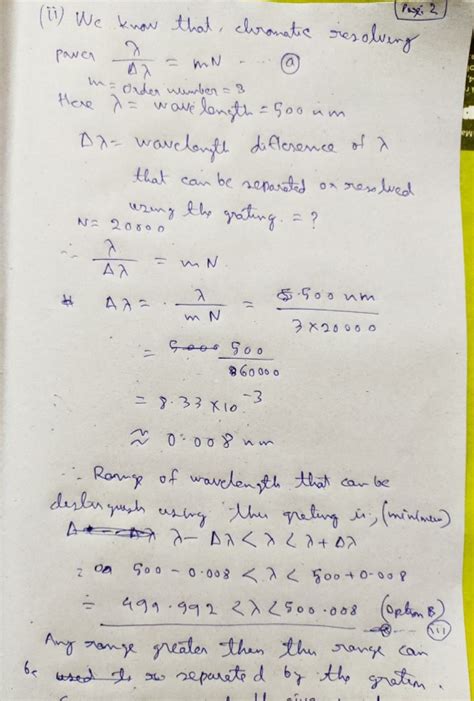 Page 2
(ii) We know that, chromatic resolving
power λ/Δλ = mN --- (a)
m = order number = 3
Here λ = wave length = 500 nm
Δλ = wavelength difference of λ
that can be separated or resolved
using the grating. = ?
N = 20000
∴ λ/Δλ = mN
Δλ = λ/mN = 500 nm/3×20000
= 500/60000
= 8.33 × 10⁻³
≈ 0.008 nm
∴ Range of wavelength that can be
distinguish using this grating is, (minimum)
λ - Δλ < λ < λ + Δλ
= 500 - 0.008 < λ < 500 + 0.008
= 499.992 < λ < 500.008 (Option B)
(iii)
Any range greater than this range can
be separated by the